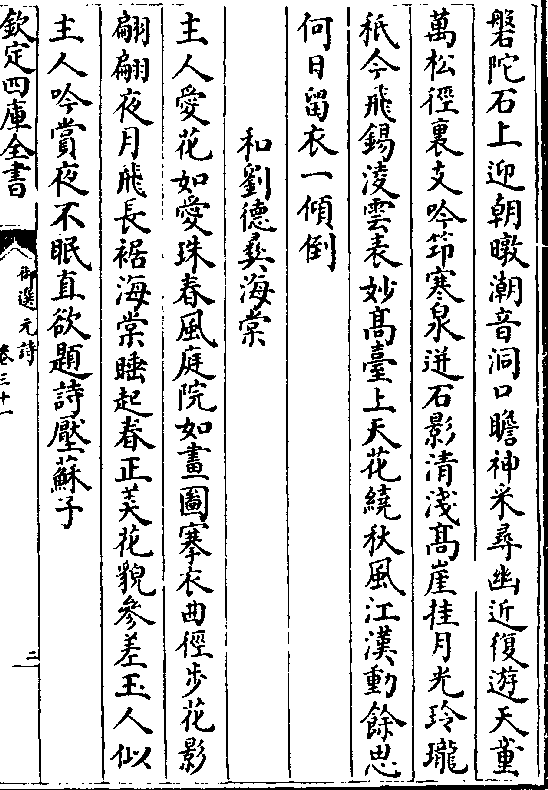 磐陀石上迎朝暾潮音洞口瞻神米尋幽近復遊天童
萬松徑裏支吟笻寒泉迸石影清淺髙崖挂月光玲瓏
秪今飛錫淩雲表妙髙臺上天花繞秋風江漢動餘思
何日留衣一傾倒
和劉德彝海棠
主人愛花如愛珠春風庭院如畫圖搴衣曲徑步花影
翩翩夜月飐長裾海棠睡起春正美花貌參差玉人似
主人吟賞夜不眠直欲題詩壓蘇子
欽定四庫全書
御選元詩
卷三十一
二